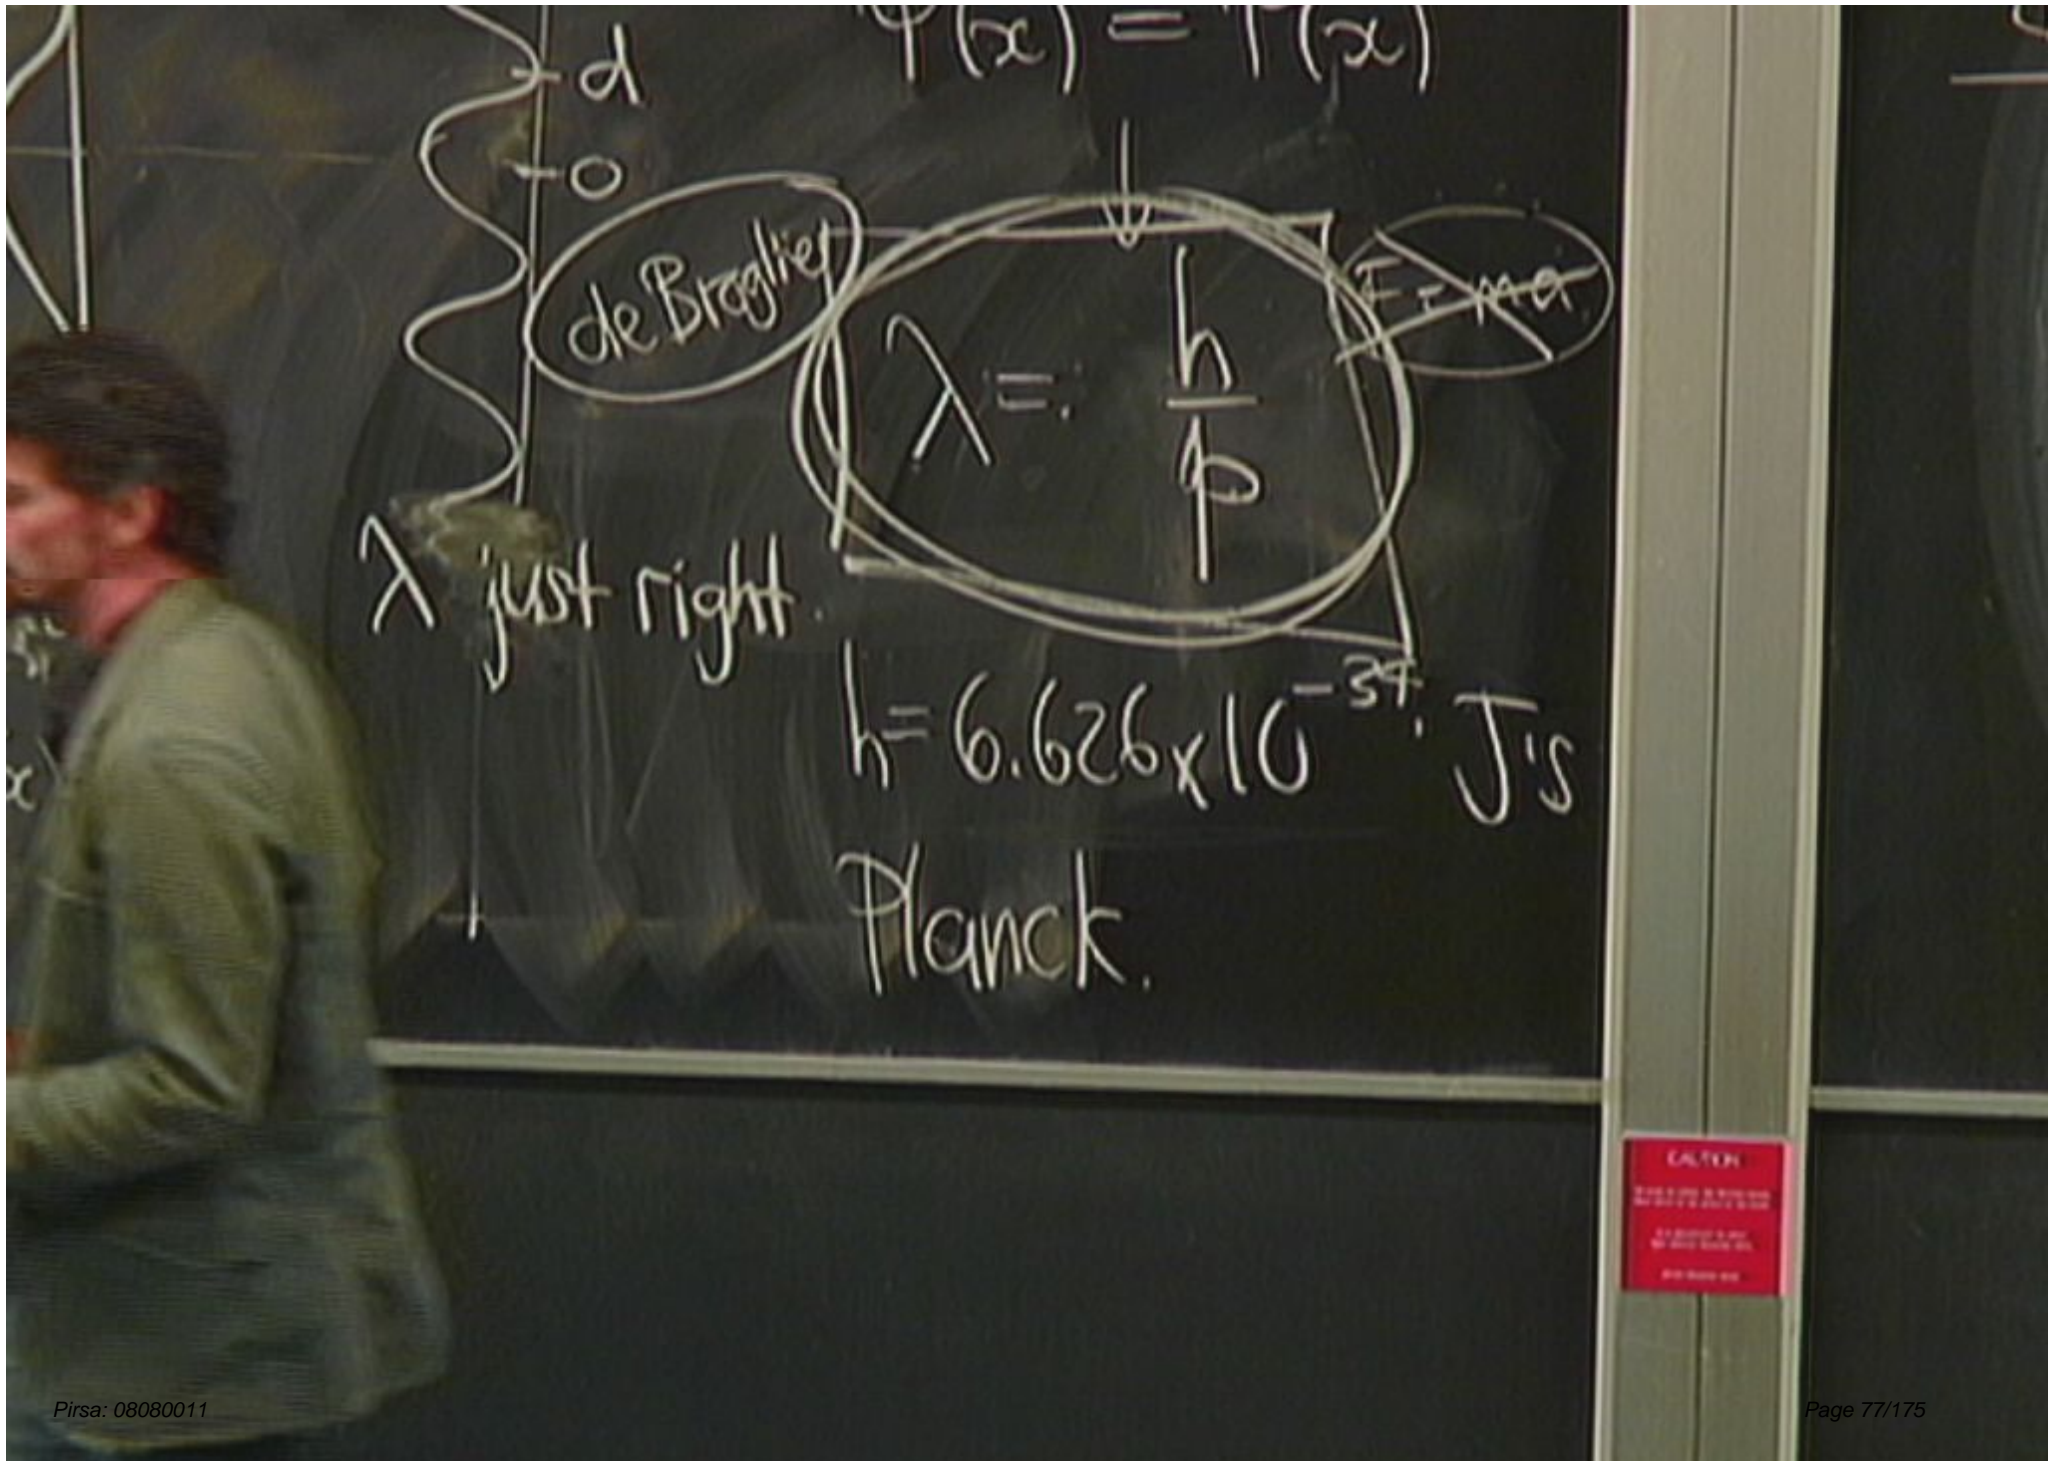 d
Ψ(x) = Ψ(x)
0
de Broglie
λ = h/p
F = ma
λ just right.
h = 6.626 x 10^-34 J·s
Planck.
CAUTION
Pirsa: 08080011
Page 77/175